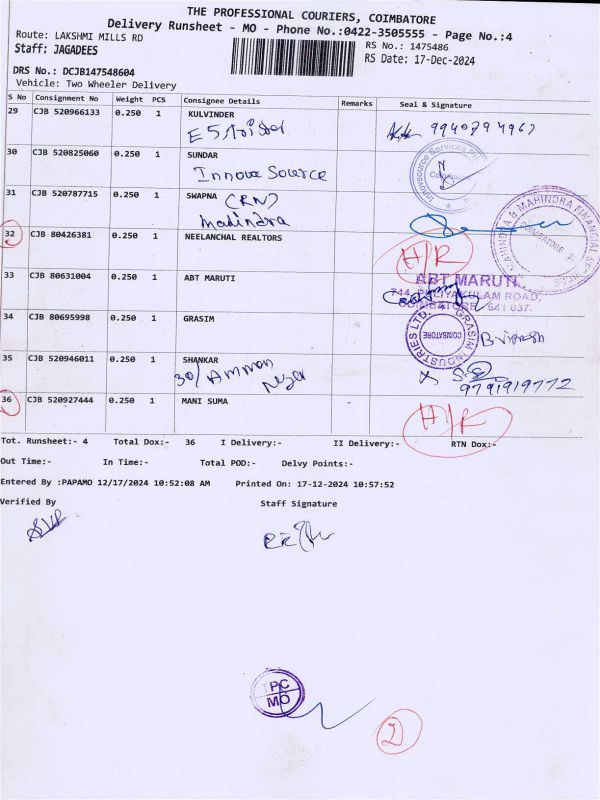 THE PROFESSIONAL COURIERS, COIMBATORE
Delivery Runsheet - MO - Phone No.:0422-3505555 - Page No.:4
Route: LAKSHMI MILLS RD
RS No.: 1475486
Staff: JAGADEES
RS Date: 17-Dec-2024
DRS No.: DCJB147548604
Vehicle: Two Wheeler Delivery
S No Consignment No Weight PCS Consignee Details Remarks Seal & Signature
29 CJB 520966133 0.250 1 KULVINDER
9940794967
30 CJB 520825060 0.250 1 SUNDAR
Innova Source
31 CJB 520787715 0.250 1 SWAPNA (RN)
Mahindra
32 CJB 80426381 0.250 1 NEELANCHAL REALTORS
H/R
33 CJB 80631004 0.250 1 ABT MARUTI
ABT MARUTI
744, PULIYAKULAM ROAD,
COIMBATORE - 641 037.
34 CJB 80695998 0.250 1 GRASIM
GRASIM INDUSTRIES LTD.
COIMBATORE
35 CJB 520946011 0.250 1 SHANKAR
30/ Amman Nagar
9791919772
36 CJB 520927444 0.250 1 MANI SUMA
H/R
Tot. Runsheet:- 4 Total Dox:- 36 I Delivery:- II Delivery:- RTN Dox:-
Out Time:- In Time:- Total POD:- Delvy Points:-
Entered By :PAPAMO 12/17/2024 10:52:08 AM Printed On: 17-12-2024 10:57:52
Verified By Staff Signature
TPC
MO
2